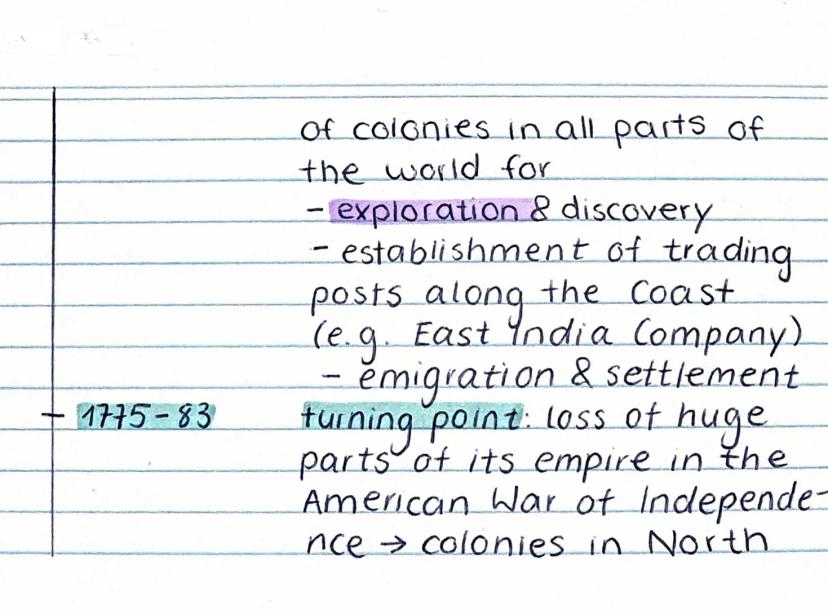 of colonies in all parts of
the world for
- exploration & discovery
- establishment of trading
posts along the Coast
(e.g. East India Company)
- emigration & settlement
1775-83 turning point: loss of huge
parts of its empire in the
American War of Independe-
nce → colonies in North